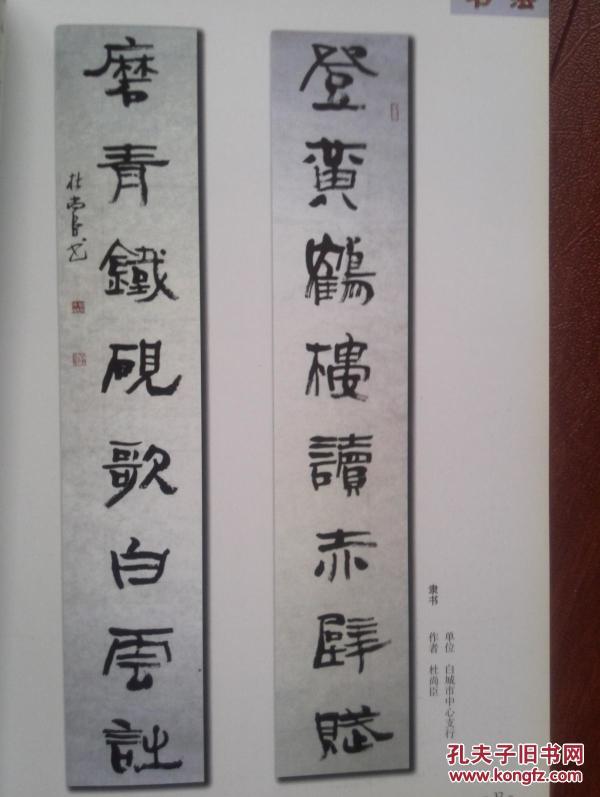 书法
登黄鶴樓讀赤壁賦
磨青鐵硯歌白雲註
杜尚臣书
隶书
单位 白城市中心支行
作者 杜尚臣
孔夫子旧书网
www.kongfz.com